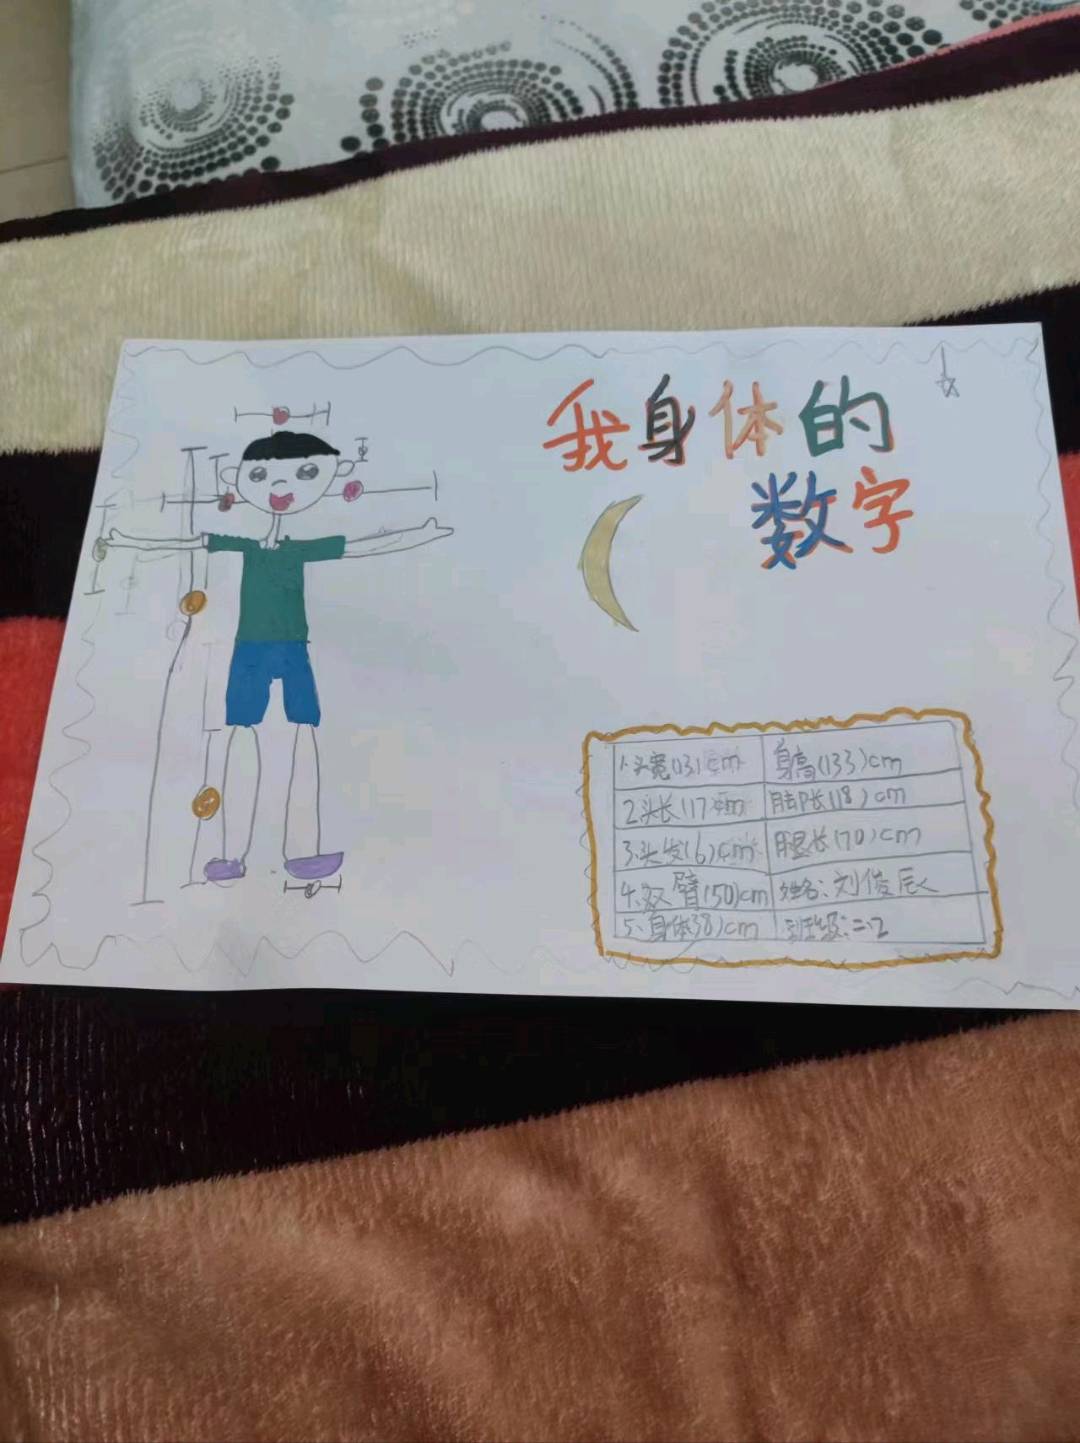 我身体的
数字
1.头宽(13)cm 身高(133)cm
2.头长(17)cm 脚长(18)cm
3.头发(6)cm 腿长(70)cm
4.双臂(50)cm 姓名:刘俊辰
5.身体38)cm 班级:二.2